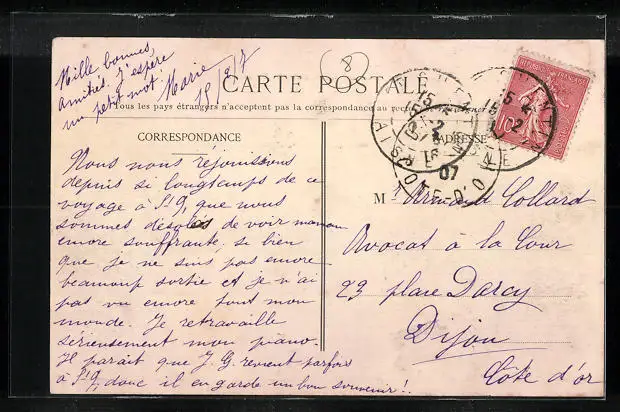 Mille bonnes
amitiés. J'espère
un petit mot.
Marie
8
CARTE POSTALE
Tous les pays étrangers n'acceptent pas la correspondance au
CORRESPONDANCE
ADRESSE
Nous nous réjouissions
depuis si longtemps de ce
voyage à St Q, que nous
sommes désolés de voir maman
encore souffrante, si bien
que je ne suis pas encore
beaucoup sortie et je n'ai
pas vu encore tout mon
monde. Je retravaille
sérieusement mon piano.
Il paraît que J. G. revient parfois
à St Q, donc il en garde un bon souvenir!.
M Armand Collard
Avocat à la Cour
23 place Darcy
Dijon
Côte d'or
10
15 2
07
COTE-D'OR